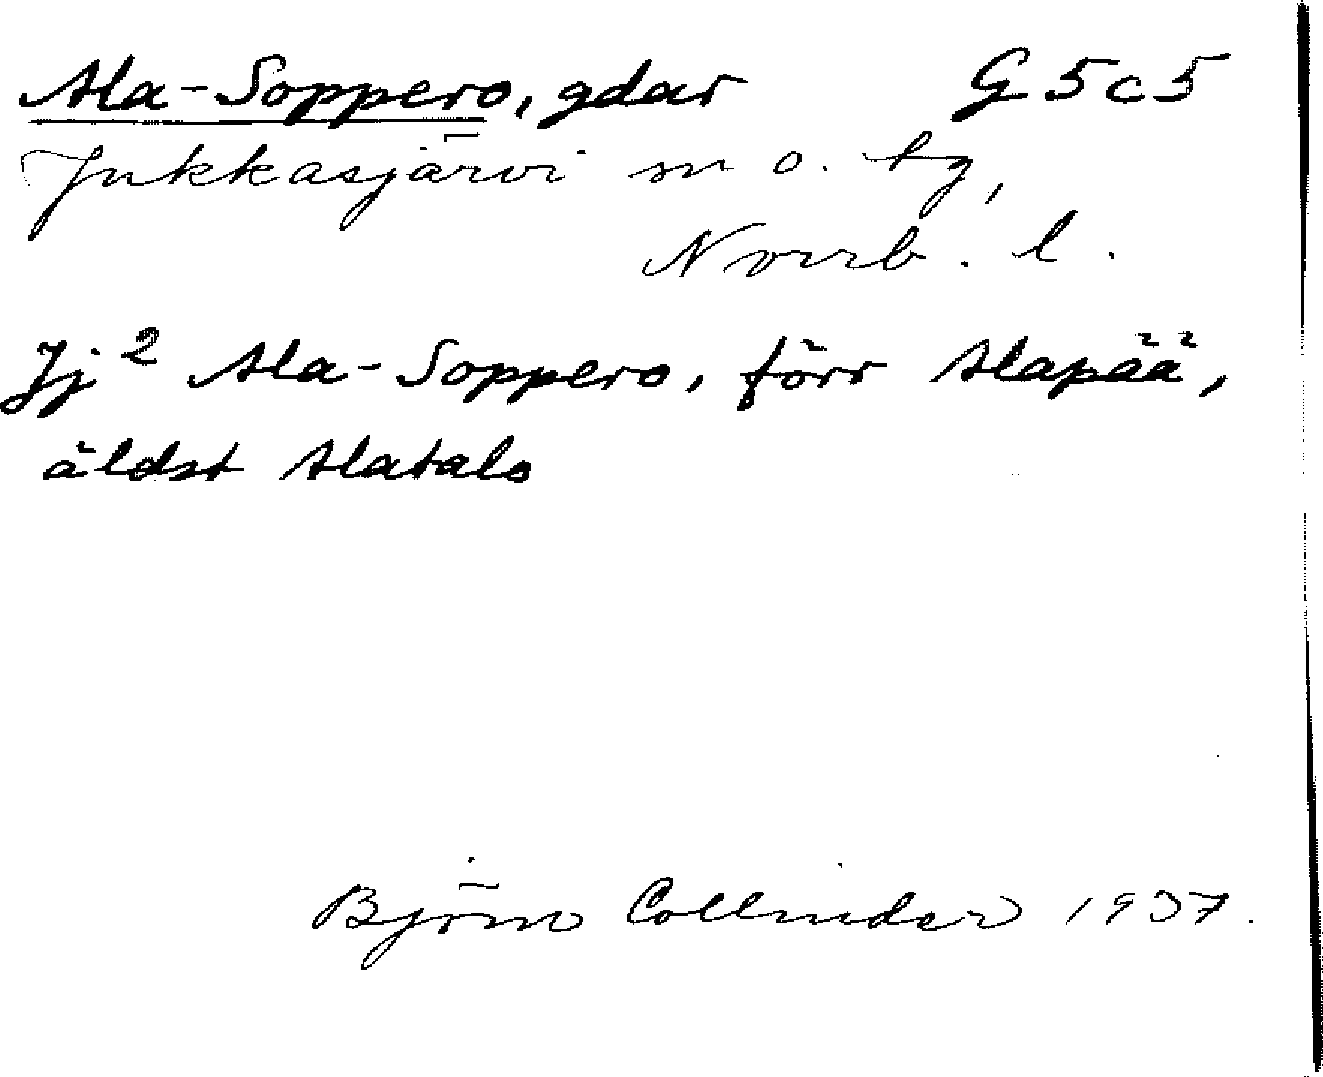 Ala-Soppero, gdar G5c5
Jukkasjärvi sn o. tg,
Norrb. l.
Jj² Ala-Soppero, förr Alapää,
äldst Alatalo
Björn Collinder 1937.